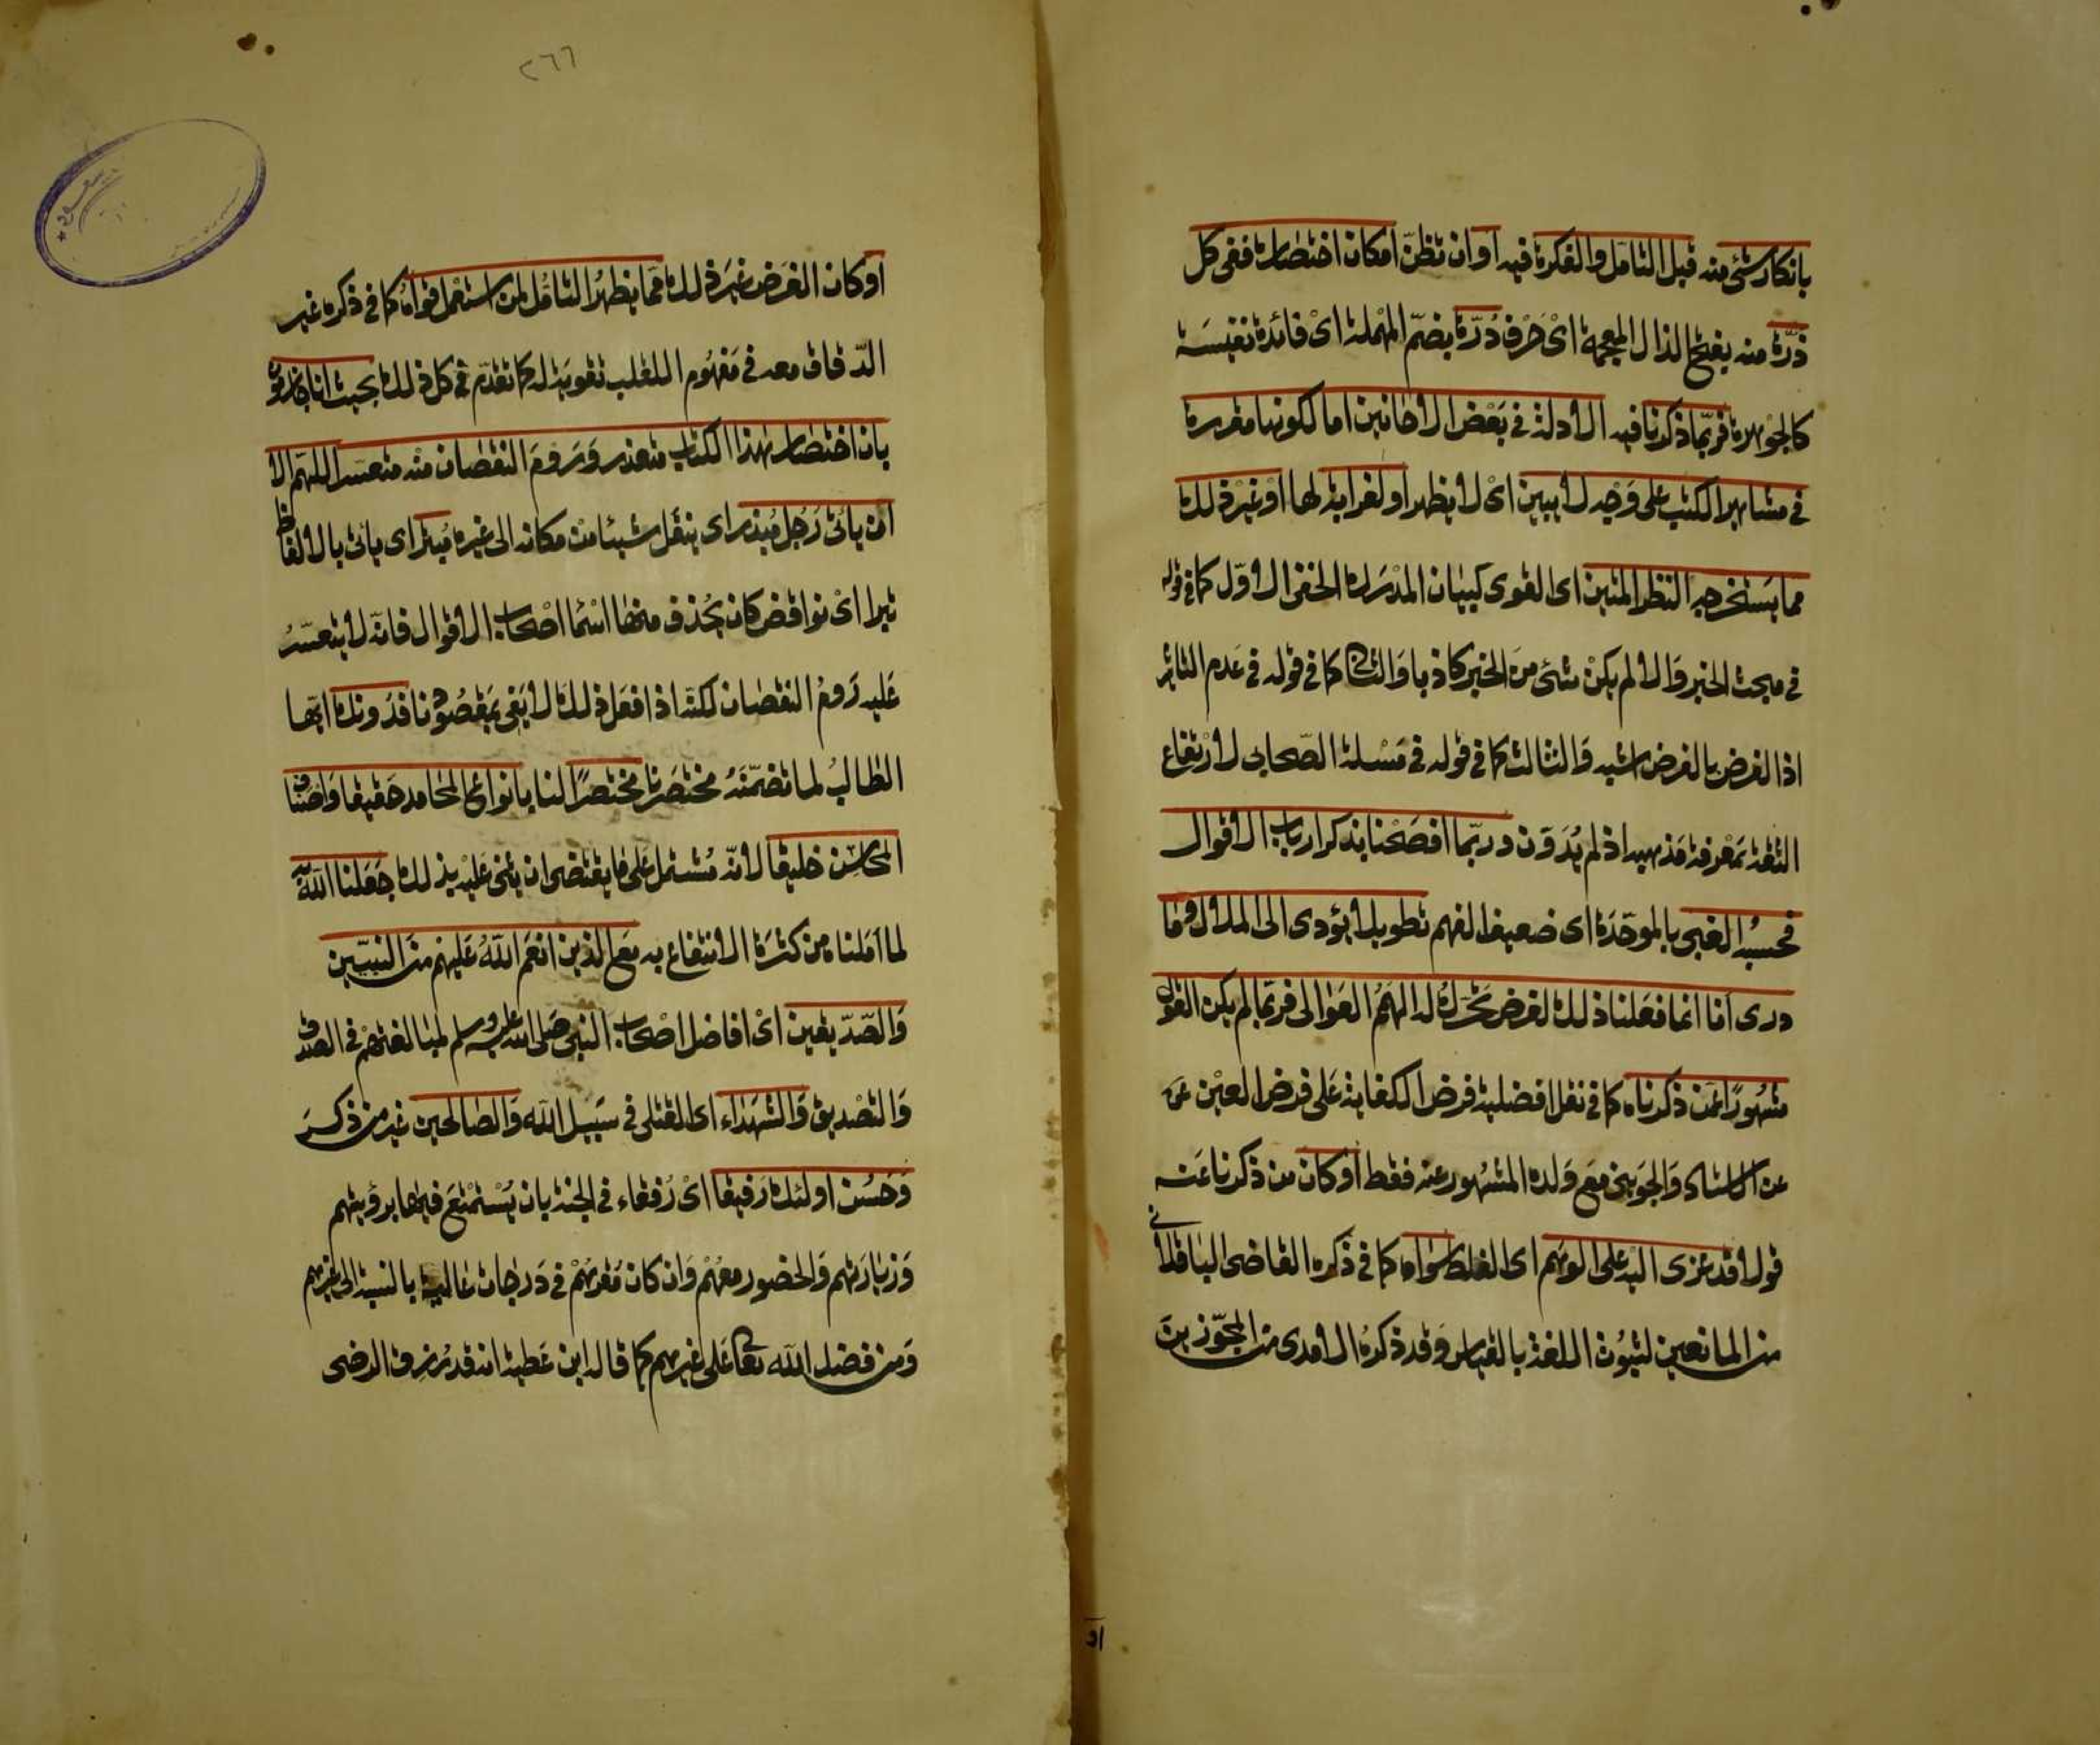 بانكار شئ منه قبل التامل والفكرة فيه او ان تظن امكان اختصاره ففى كل
ذَرَّة منه بفتح الذال المعجمة اىْ حَرْف دُرّة بضمّ المهْملة اىْ فائدة نفيسَة
كالجوْهرة فربّما ذكرنا فيه الادلة فى بَعْض الاحايين اما لكونها مقررة
فى مشاهير الكتب على وَجْه لا يبين اىْ لا يظهر او لغرابة لها اوْ غيْر ذلك
مما يَستخرجه النظر المتين اى القوى كبيان المدْرَك الخفى الاوّل كما فى قوله
فى مبحث الخبر وَالا لم يكنْ شئ منَ الخبر كاذبا وَالثانى كما فى قوله فى عَدم التاثير
اذ الفرض بالفرض اشبه وَالثالث كما فى قوله فى مَسْئلة الصّحابى لارْتفاع
الثقة بمَعْرفة مَذهبه اذ لم يُدَوّن وربّما افصَحْنا بذكر ارباب الاقوال
فحسبُه الغبى بالموَحّدَة اى ضعيف الفهم تطويلا يؤدى الى الملال وَمَا
درى اَنا انما فعَلنا ذلك لغرض تحرّك له الهمَمُ العَوَالى فربّما لم يكن القول
مشهُورًا عمّن ذكرناه كما فى نقل افضلية فرض الكفاية على فرض العيْن عن
عن الاستاذ وَالجوَينى مَعَ وَلده المشهُور عنه فقط اوْ كان من ذكرنا عَنه
قولا قد عزى اليه على الوهم اى الغلط سوَاه كما فى ذكره القاضى الباقلانى
من المانعين لثبوُت اللغة بالقياس وَقد ذكرُه الامدى من المجوّزين
او
٢٦٦
اوْ كان الغَرَض غيرَ ذلك ممَا يظهرُه التامّل لمن استعْمل قوَاهُ كما فى ذكره غير
الدّقاق معه فى مَفهُوم اللقلب تقويَة له كما تقدّم فى كل ذلك بحيث انا جازمون
بان اختصار هذا الكتاب متعذر وَرَوْمَ النقصان منه متعسر اللهمّ الا
ان ياتىَ رَجُل مُبذر اى ينقل شيئا منْ مكانه الى غيره مُبترْ اى ياتى بالالفاظ
بترا اىْ نواقص كان يحْذف منها اسْمَا اصْحاب الاقوال فانّه لا يتعسّرُ
عَليه رَومُ النقصان لكنّه اذا فعَل ذلك لا يَفى بمَقصُودنا فدُونك ايّها
الطالبُ لما تضمّنَهُ مختصَرنا مختصَرًا لنا بانوَاع المحَامد حَقيقا وَاصْناف
المحَاسِن خليقا لانّه مُشتمل عَلى مَا يقتضى ان يثنى عَليْه بذلك جَعَلنا الله به
لما اَمَلناه من كثرَة الانتفاع به مَع الذين انعَم اللهُ عَليْهم منَ النبيّين
وَالصّدّيقين اىْ افاضل اصْحاب النبى صَلى الله عليه وسلم لمبالغتهمْ فى الصدق
وَالتصْديق وَالشهَداء اى القتلى فى سَبيل الله وَالصَالحين غير من ذكرَ
وَحَسُن اولئك رَفيقا اىْ رُفقاء فى الجنة بان يُسْتمتعَ فيهَا برؤيتهم
وَزيَارَتهم وَالحضور معَهُمْ وَان كان مَقرهُمْ فى دَرجَات عَالية بالنسبة الى غيرهم
وَمن فضل الله تعَالى عَلى غيرهم كما قاله ابن عَطية انه قد رُزِق الرضى